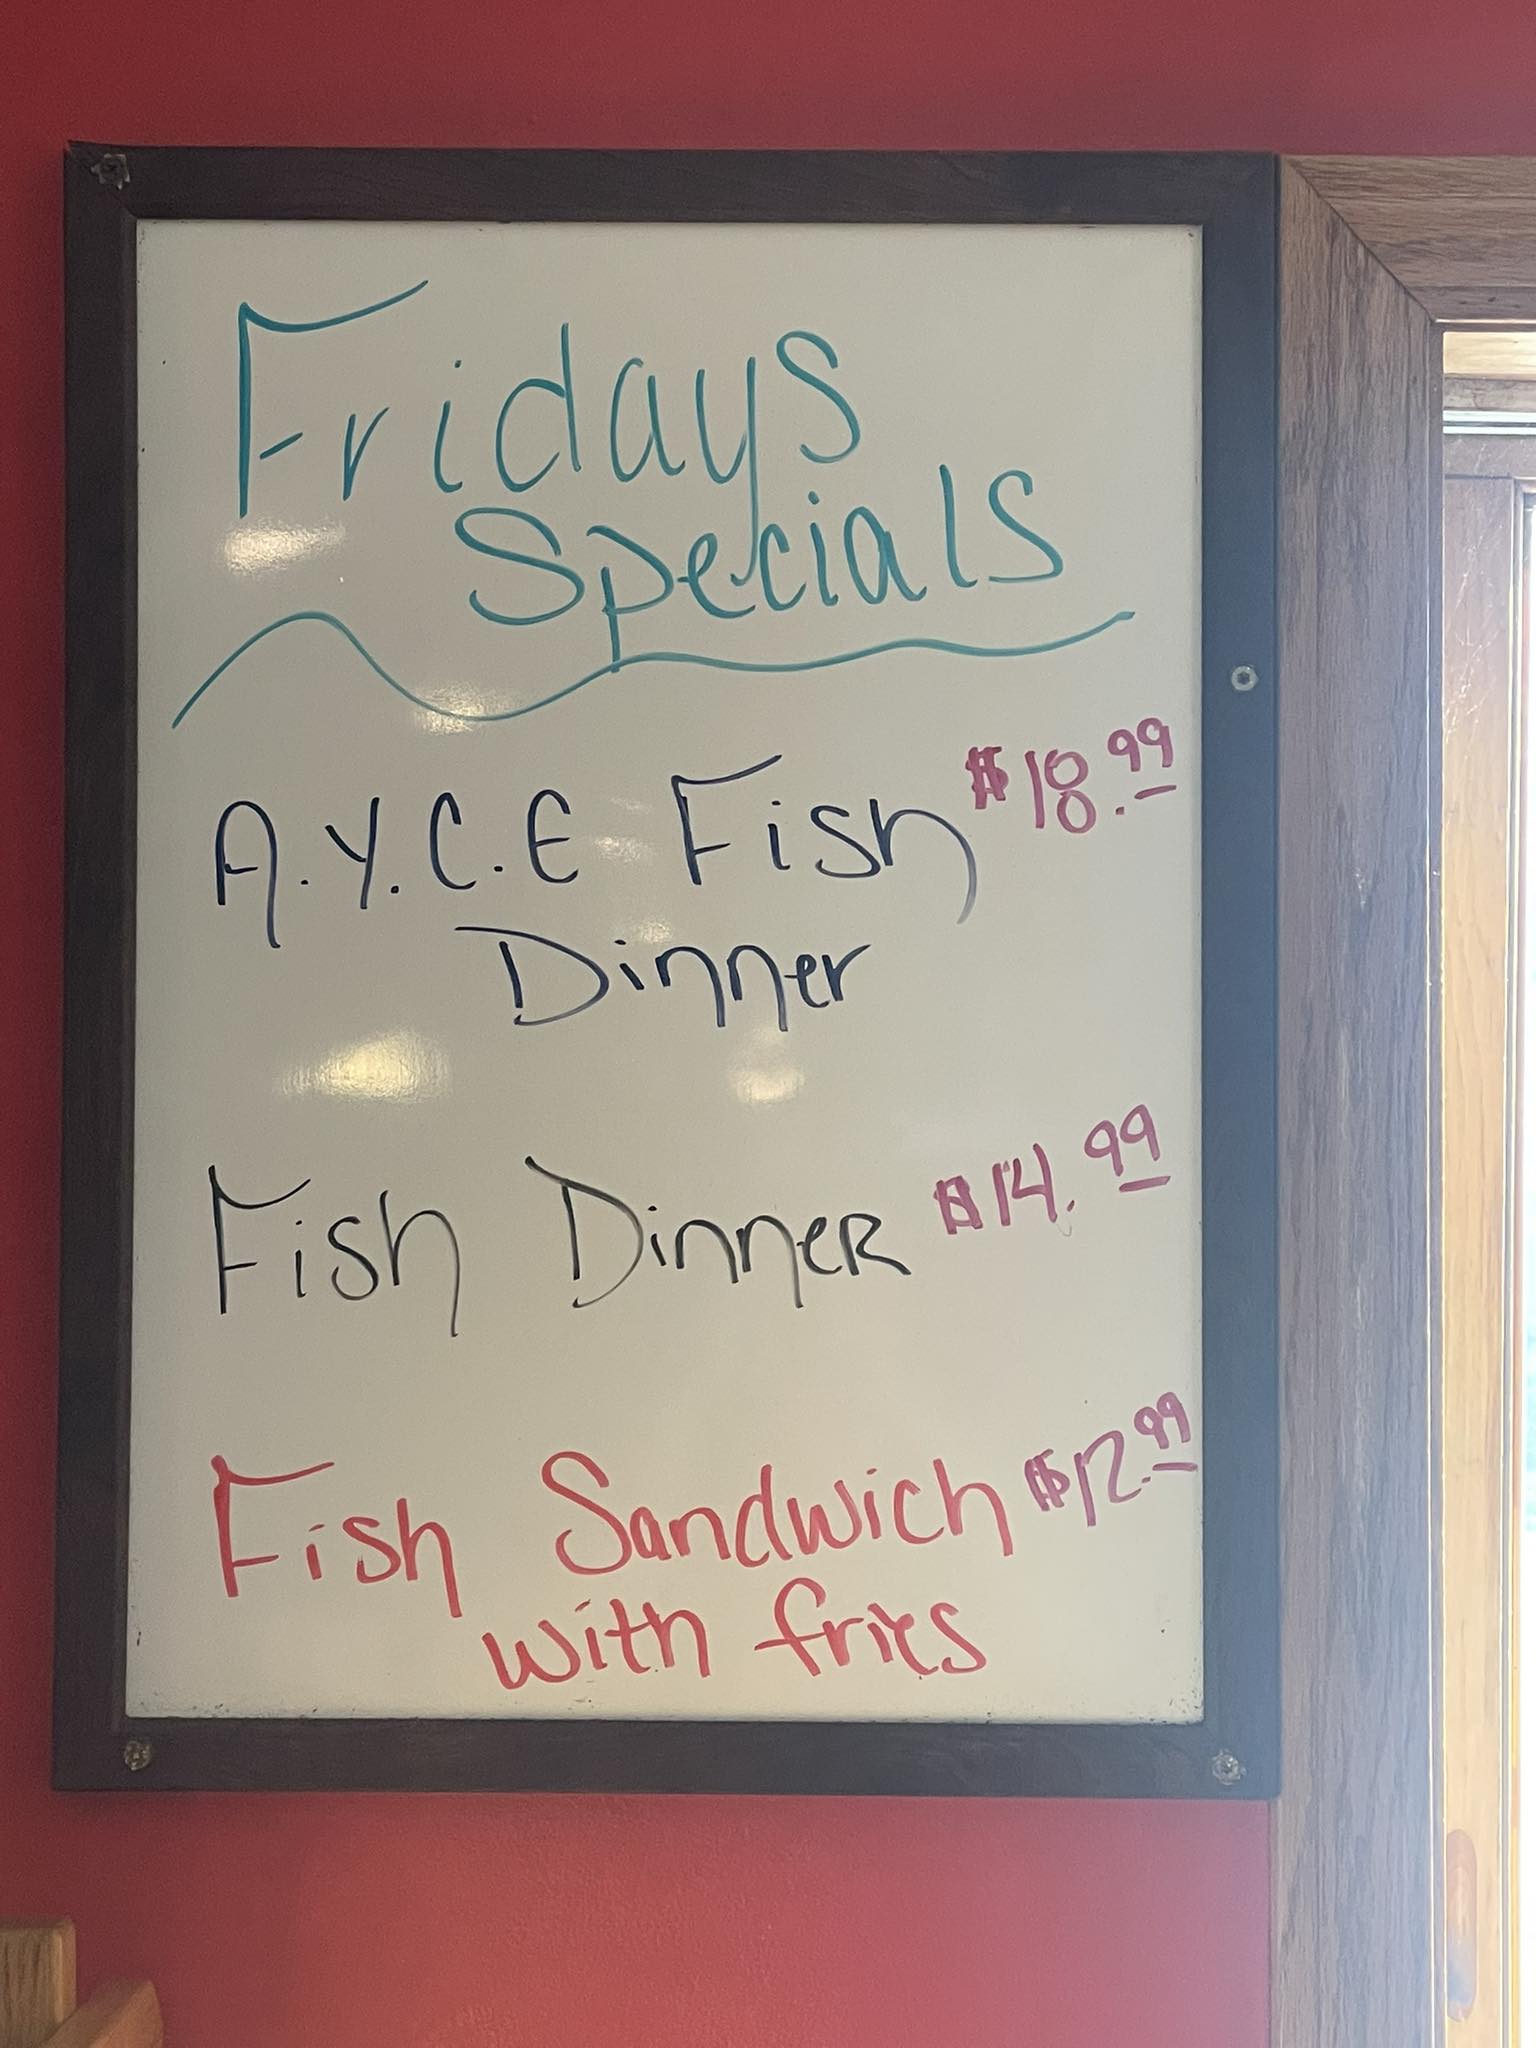 Fridays
Specials
A.Y.C.E Fish $18.99
Dinner
Fish Dinner $14.99
Fish Sandwich $12.99
with fries